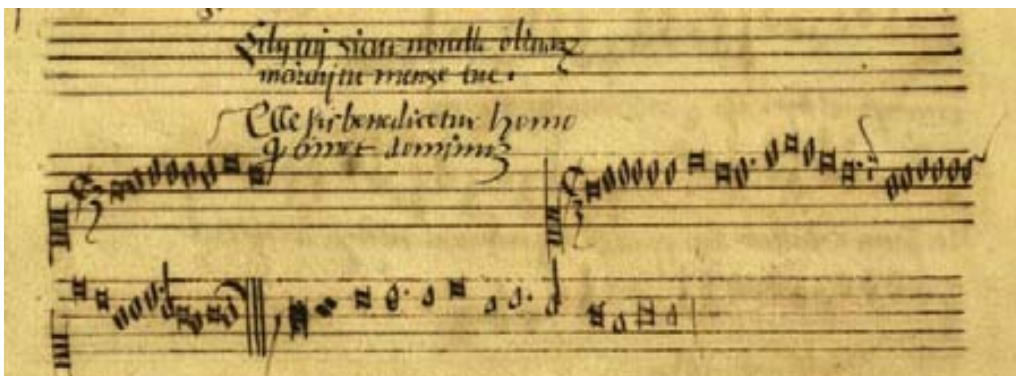 Filij tui sicut novelle olivarũ
in circuitu mense tue.
Ecce sic benedicetur homo
q̃ timet dominũ